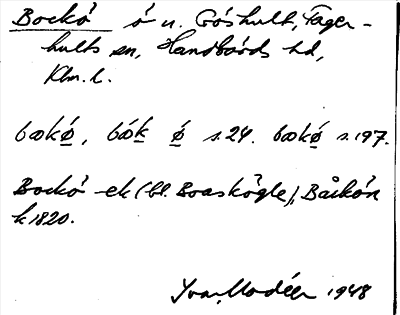 Bockö ö u. Góshult, Fager-
hults sn, Handbörds hd,
Klm. l.
bokǿ, bók ǿ s. 24. bokǿ s. 197.
Bockö -ek (bl. Boaskögle), Båckön
k 1820.
Ivar Modéer 1948